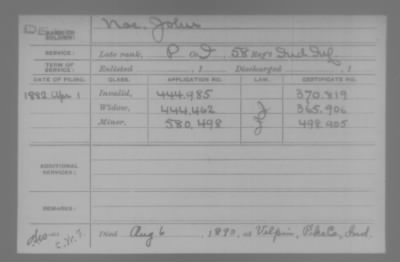 NAME OF SOLDIER: Noe, John
SERVICE: Late rank, P Co I, 58 Reg't Ind. Inf.
TERM OF SERVICE: Enlisted , 1 Discharged , 1
DATE OF FILING. CLASS. APPLICATION NO. LAW. CERTIFICATE NO.
1882 Apr 1 Invalid, 444,985 370.819
Widow, 444,462 J 365,906
Minor, 580,498 J 498,905
ADDITIONAL SERVICES:
REMARKS:
Died Aug 6, 1890, at Velpen, Pike Co, Ind.